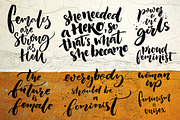 females
are
strong as
Hell
she needed
a HERO, so
that's what
she became
power
in
girls
proud
feminist
the
future is
female
everybody
should be a
feminist
woman
up
feminism
is
unisex